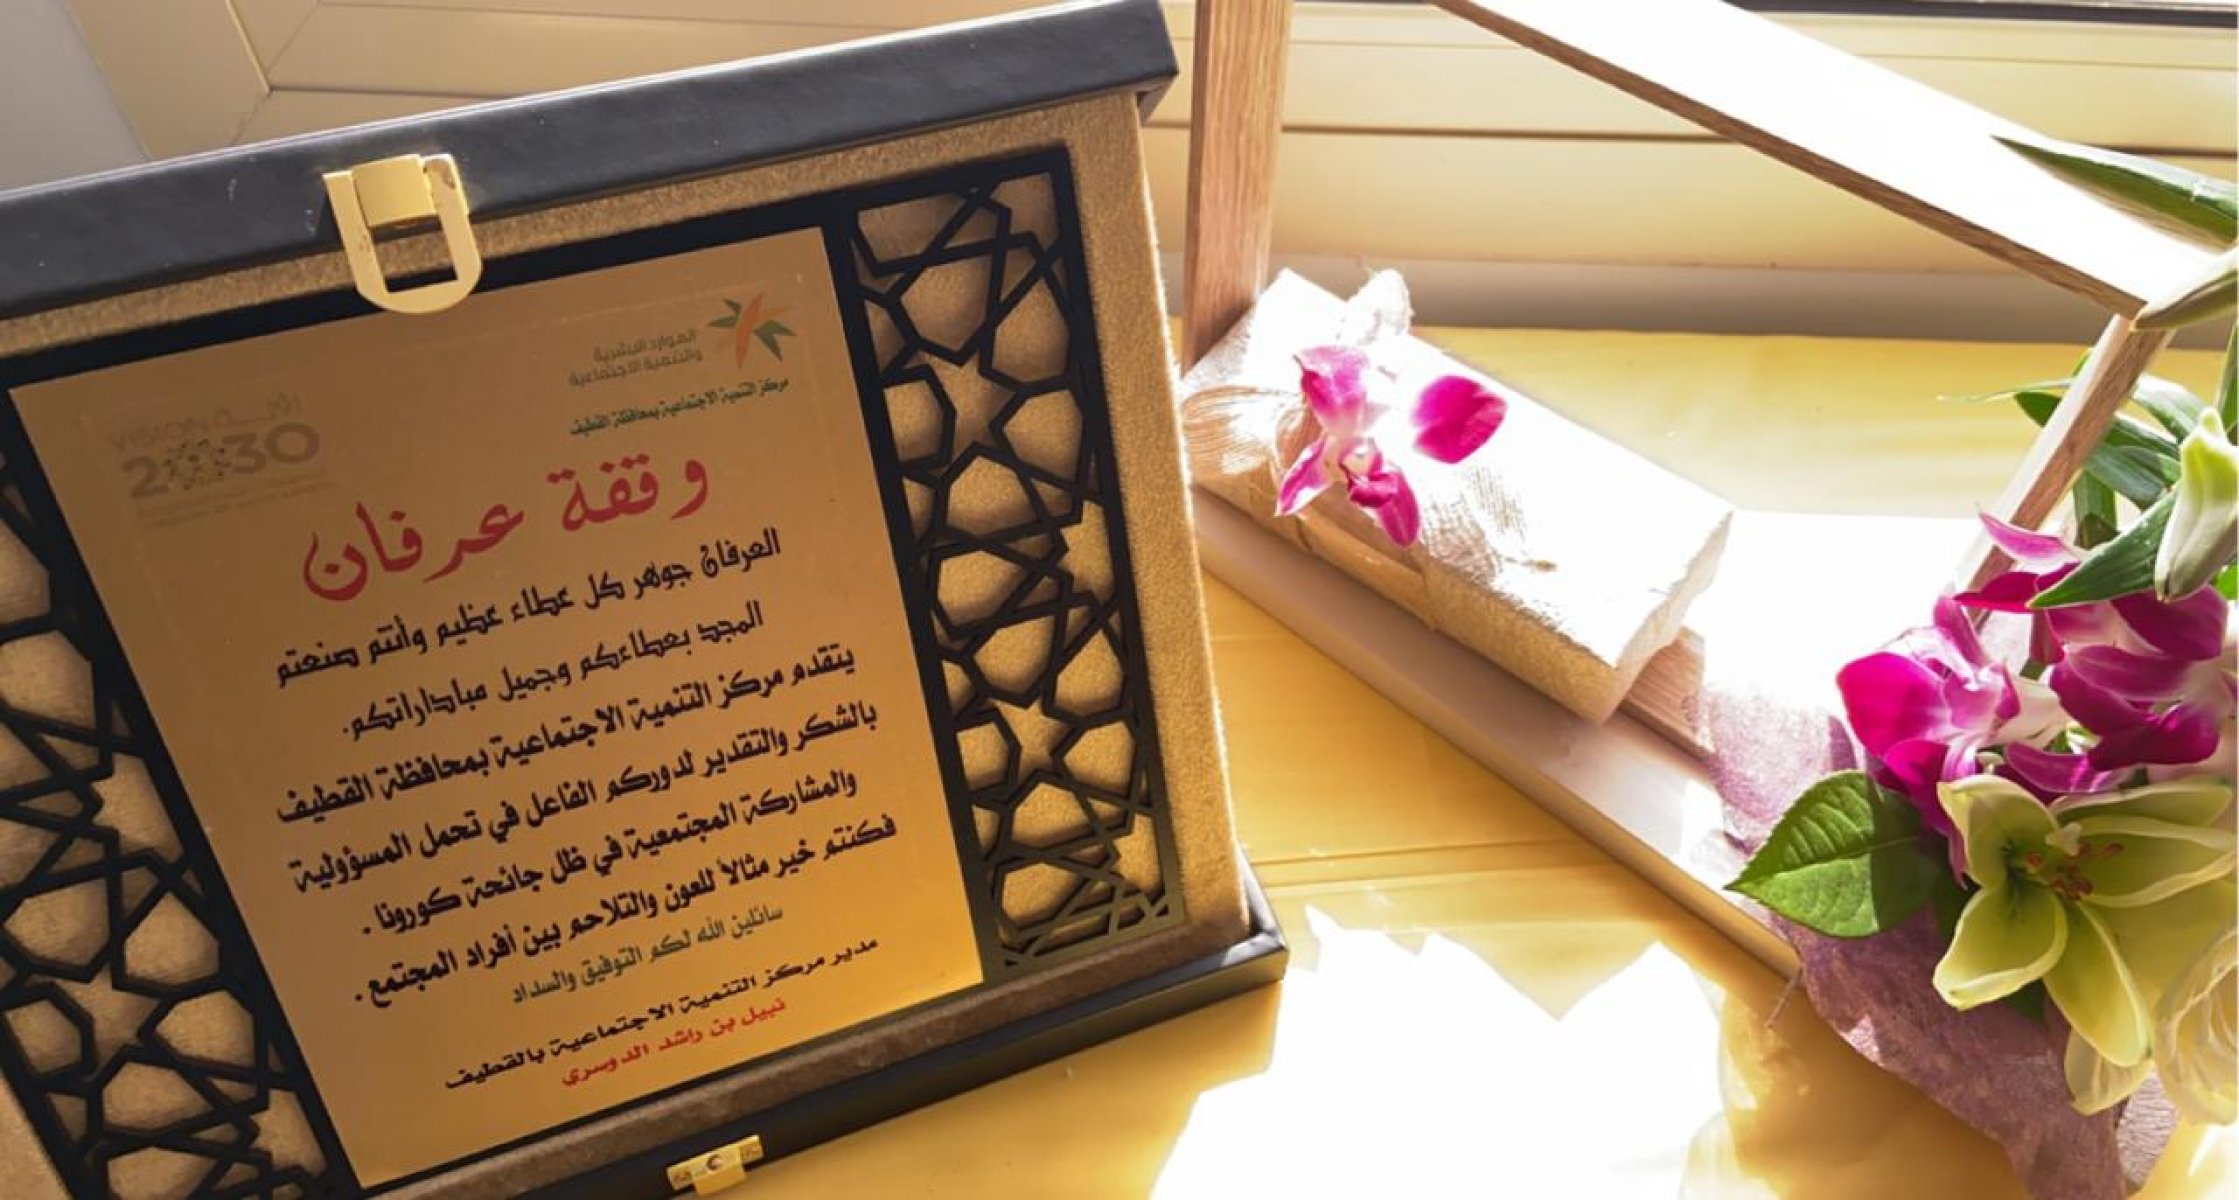 الموارد البشرية
والتنمية الاجتماعية
مركز التنمية الاجتماعية بمحافظة القطيف
VISION رؤيـة
2030
وقفة عرفان
العرفان جوهر كل عطاء عظيم وأنتم صنعتم
المجد بعطاءكم وجميل مباداراتكم.
يتقدم مركز التنمية الاجتماعية بمحافظة القطيف
بالشكر والتقدير لدوركم الفاعل في تحمل المسؤولية
والمشاركة المجتمعية في ظل جائحة كورونا .
فكنتم خير مثالاً للعون والتلاحم بين أفراد المجتمع .
سائلين الله لكم التوفيق والسداد
مدير مركز التنمية الاجتماعية بالقطيف
نبيل بن راشد الدوسري